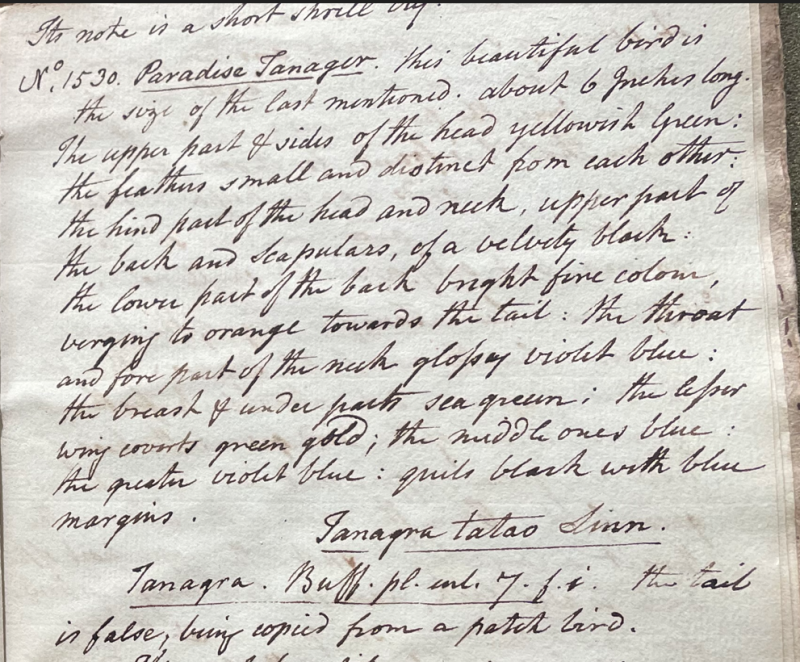 Its note is a short shrill cry.
No. 1530. Paradise Tanager. this beautiful bird is
the size of the last mentioned. about 6 Inches long.
The upper part & sides of the head yellowish Green:
the feathers small and distinct from each other:
the hind part of the head and neck, upper part of
the back and scapulars, of a velvety black:
the lower part of the back bright fire colour,
verging to orange towards the tail: the throat
and fore part of the neck glossy violet blue:
the breast & under parts sea green; the lesser
wing coverts green gold; the middle ones blue:
the greater violet blue: quils black with blue
margins.
Tanagra tatao Linn.
Tanagra. Buff. pl. enl. 7. f. i. the tail
is false, being copied from a patch bird.